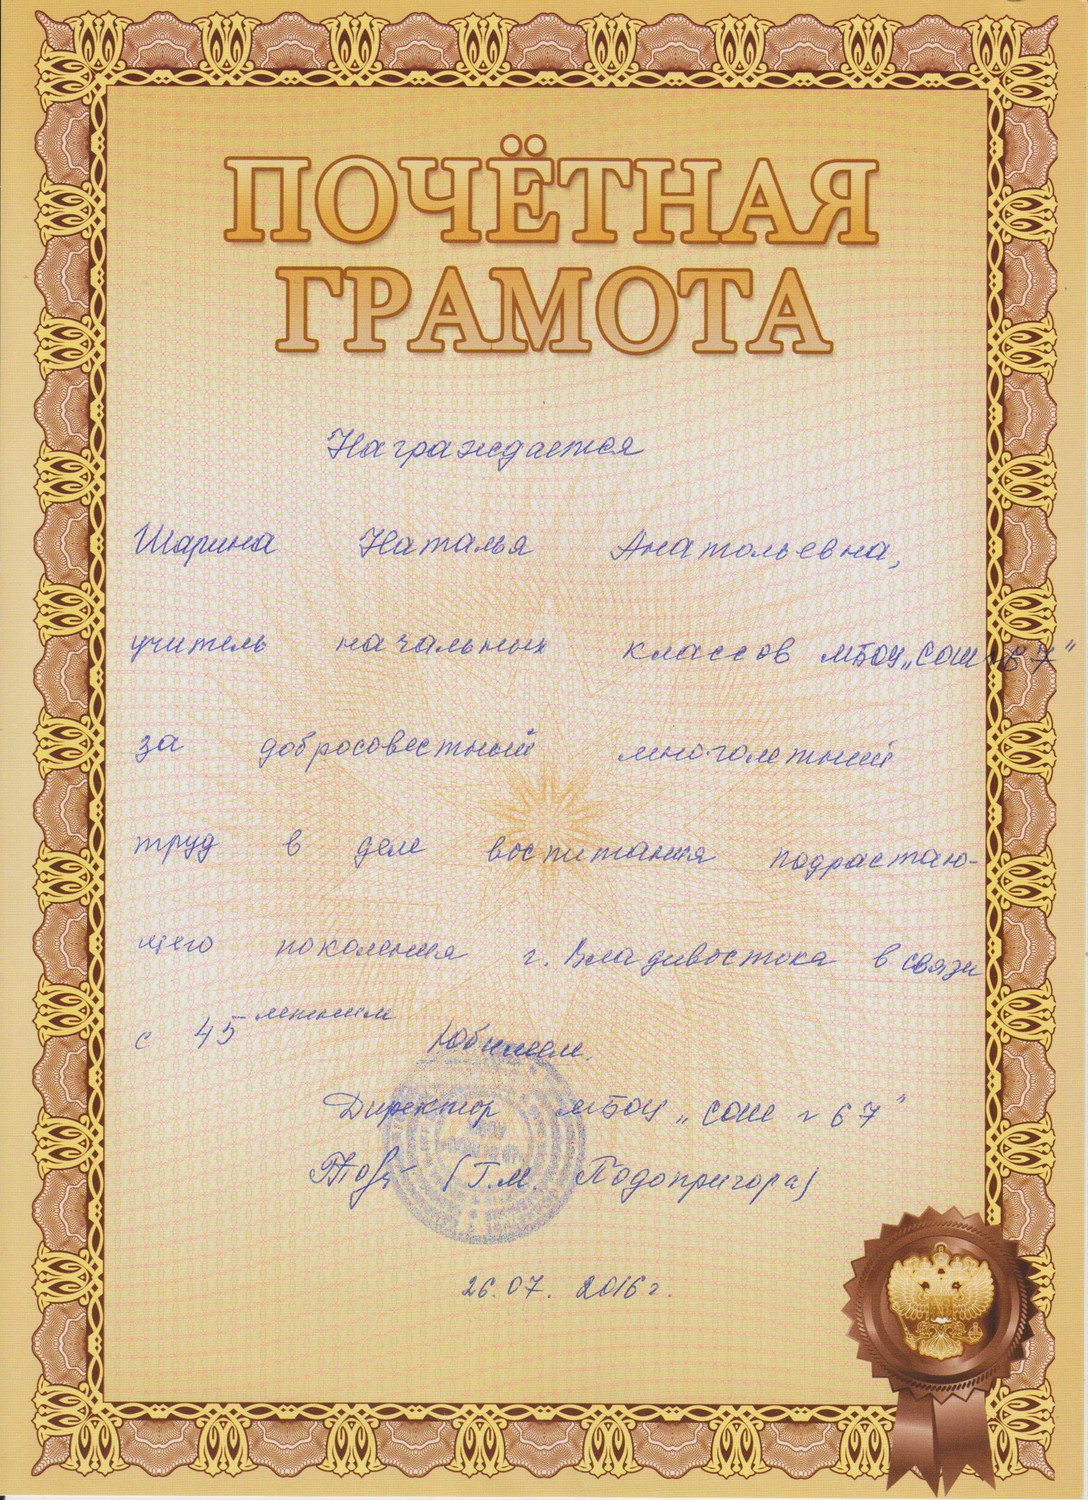 ПОЧЁТНАЯ
ГРАМОТА
Награждается
Шарина Наталья Анатольевна,
учитель начальных классов МБОУ „СОШ № 67"
за добросовестный многолетний
труд в деле воспитания подрастаю-
щего поколения г. Владивостока в связи
с 45 летним Юбилеем.
Директор МБОУ „СОШ № 67"
(Г.М. Подопригора)
26.07. 2016 г.